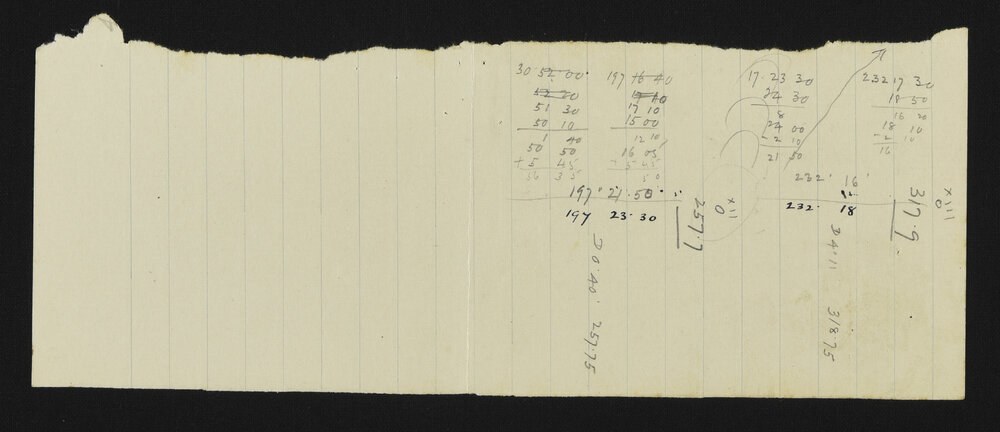 30 52 00
51 30
50 10
1 40
50 50
+ 5 45
56 35
197 16 40
17 10
15 00
12 10
16 05
+ 5 45
50
197° 21' 50"
197 23·30
17· 23 30
24 30
24 00
- 2 10
21 50
232 17 30
18 50
18 10
- 2 10
16
232° 16'
232· 18
xiii
0
257·7
20·40' 257·75
xiii
0
317·9
24·11 318·75